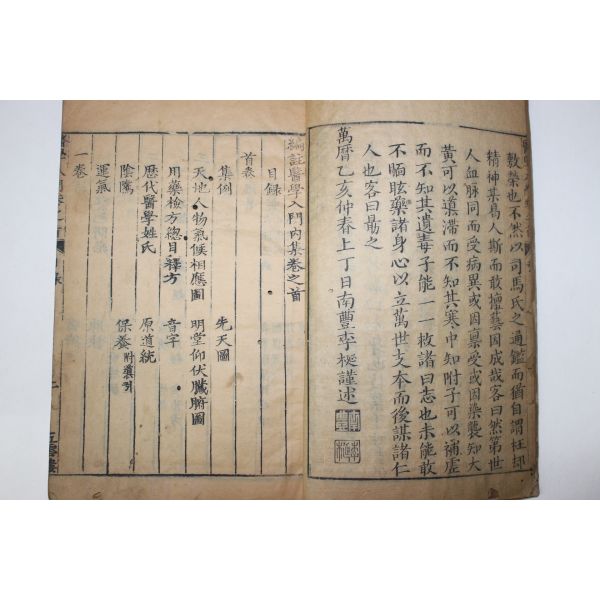 敎榮也不然以司馬氏之通鑑而猶自謂枉
精神某曷人斯而敢擅藝因成哉客曰然第世
人血脉同而受病異或因禀受或因藥襲知大
黃可以蕩滯而不知其寒中知附子可以補虛
而不知其遺毒子能一一救諸曰志也未能敢
不瞑眩藥諸身心以立萬世支本而後謀諸仁
人也客曰勗之
萬曆乙亥仲春上丁日南豐李梴謹述
編註醫學入門內集卷之首
目錄
首卷
集例 先天圖
天地人物氣候相應圖 明堂仰伏臟腑圖
用藥檢方總目釋方 音字
歷代醫學姓氏 原道統
陰騭 保養附導引
運氣
一卷